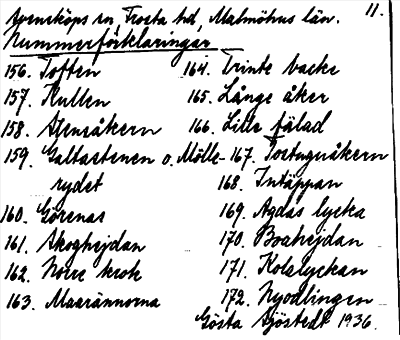 Svensköps sn Frosta hd, Malmöhus län. 11.
Nummerförklaringar
156. Toften
157. Kullen
158. Stensåkern
159. Galtastenen o. Mölle-
rydet
160. Görenas
161. Skoghejdan
162. Norre krok
163. Maarännorna
164. Trinte backe
165. Långe åker
166. Lille fälad
167. Tortugnåkern
168. Intäppan
169. Agdas lycka
170. Boahejdan
171. Kolalyckan
172. Nyodlingen
Gösta Sjöstedt 1936.